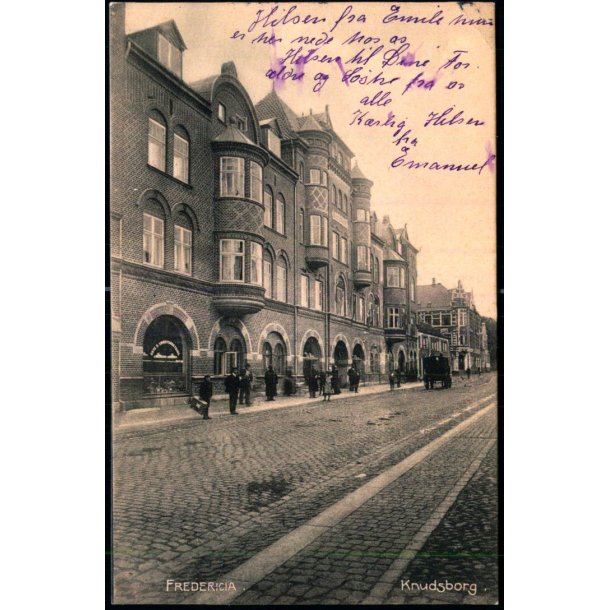 Hilsen fra Emile han
er her nede hos os
Hilsen til Dine For
ældre og fra os
alle
Kærlig Hilsen
fra
Emanuel
FREDERICIA.
Knudsborg.